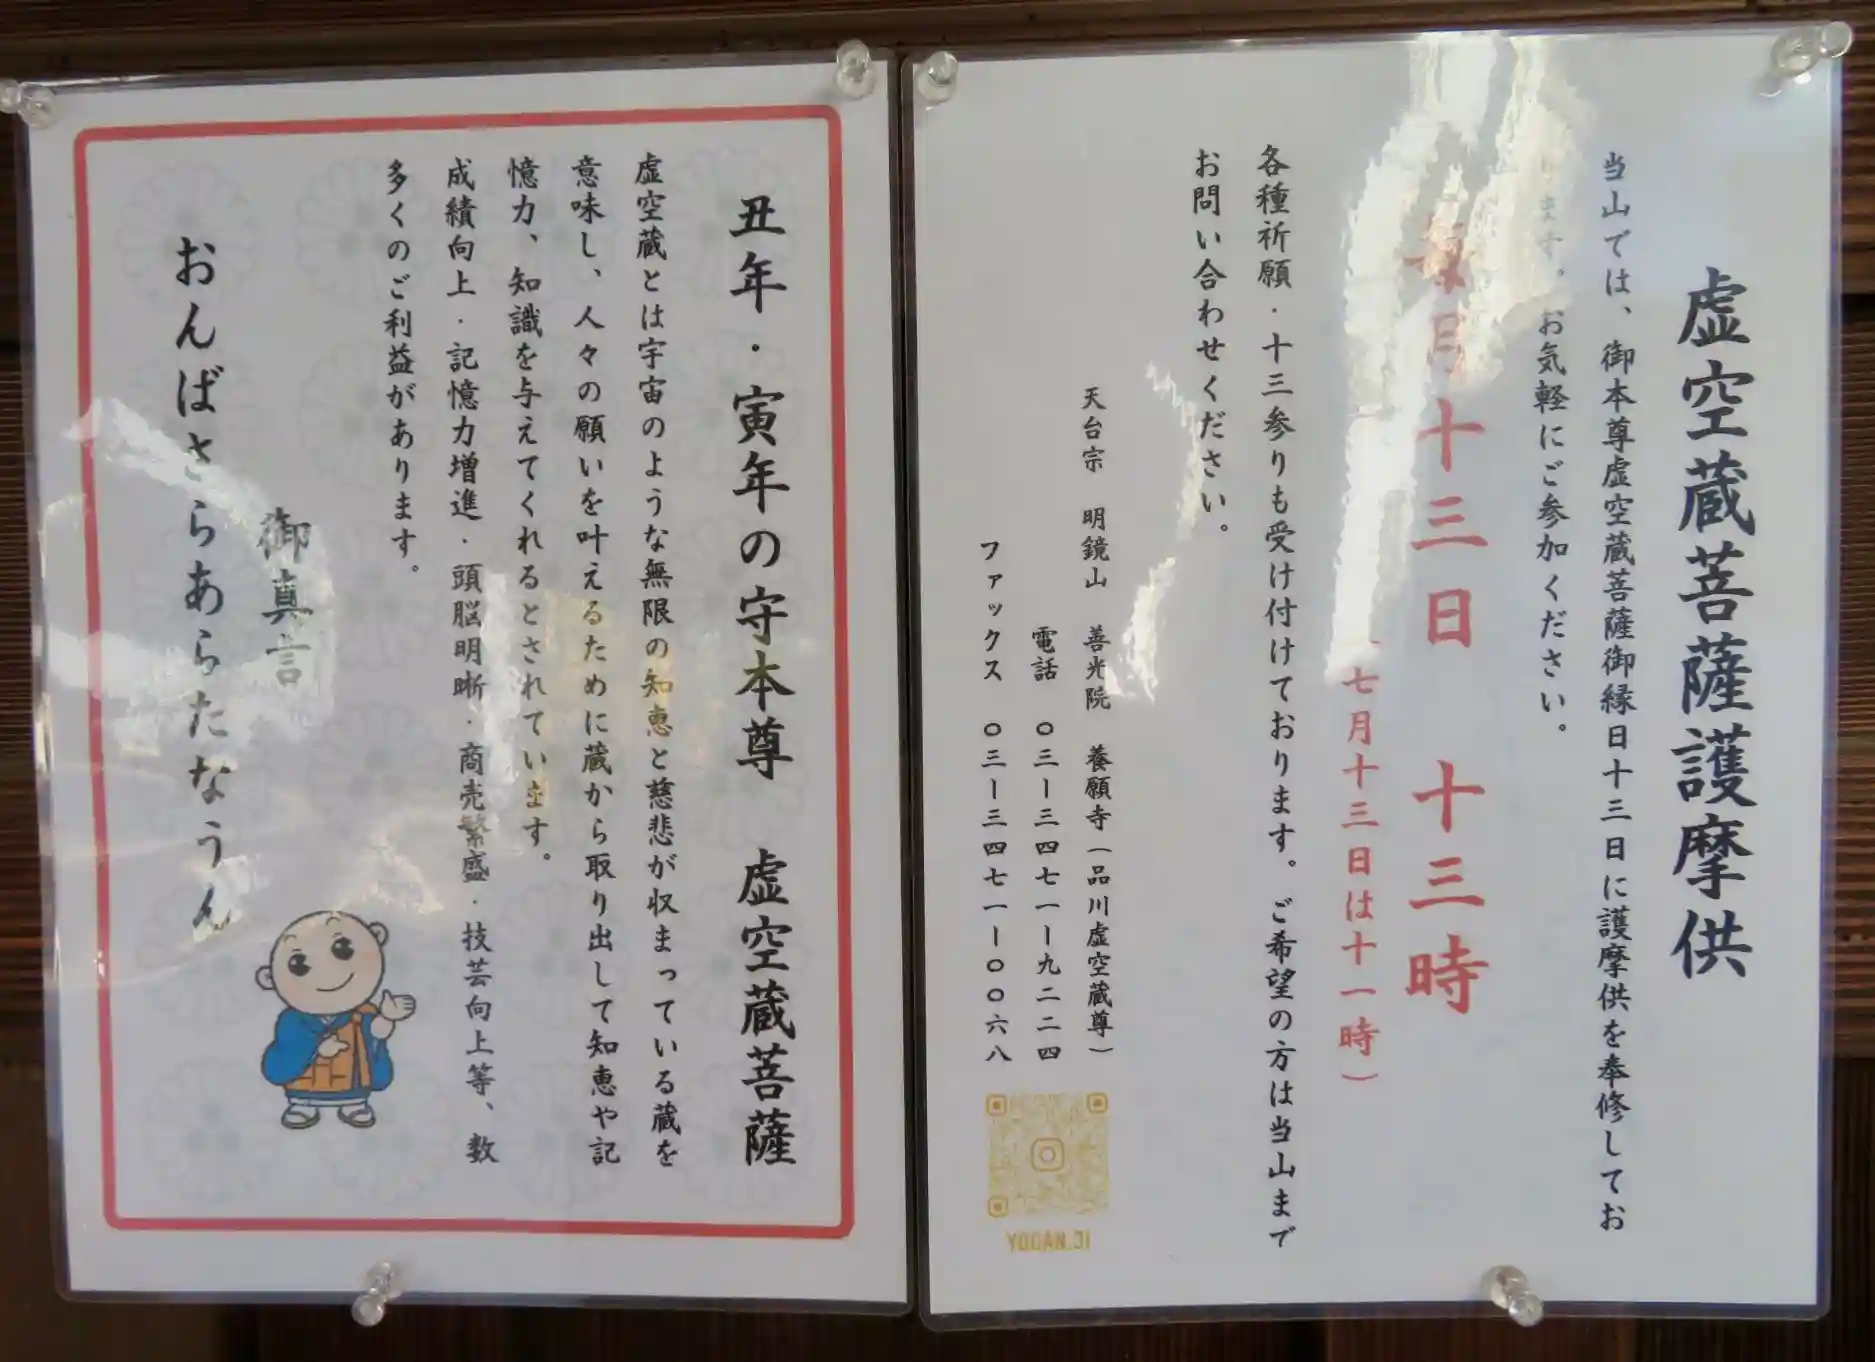 虚空蔵菩薩護摩供
当山では、御本尊虚空蔵菩薩御縁日十三日に護摩供を奉修してお
ります。お気軽にご参加ください。
毎月十三日 十三時
(七月十三日は十一時)
各種祈願・十三参りも受け付けております。ご希望の方は当山まで
お問い合わせください。
天台宗 明鏡山 善光院 養願寺(品川虚空蔵尊)
電話 〇三ー三四七一ー九二二四
ファックス 〇三ー三四七一ー〇〇六八
YOGAN.JI
丑年・寅年の守本尊 虚空蔵菩薩
虚空蔵とは宇宙のような無限の知恵と慈悲が収まっている蔵を
意味し、人々の願いを叶えるために蔵から取り出して知恵や記
憶力、知識を与えてくれるとされています。
成績向上・記憶力増進・頭脳明晰・商売繁盛・技芸向上等、数
多くのご利益があります。
御真言
おんばさらあらたなうん